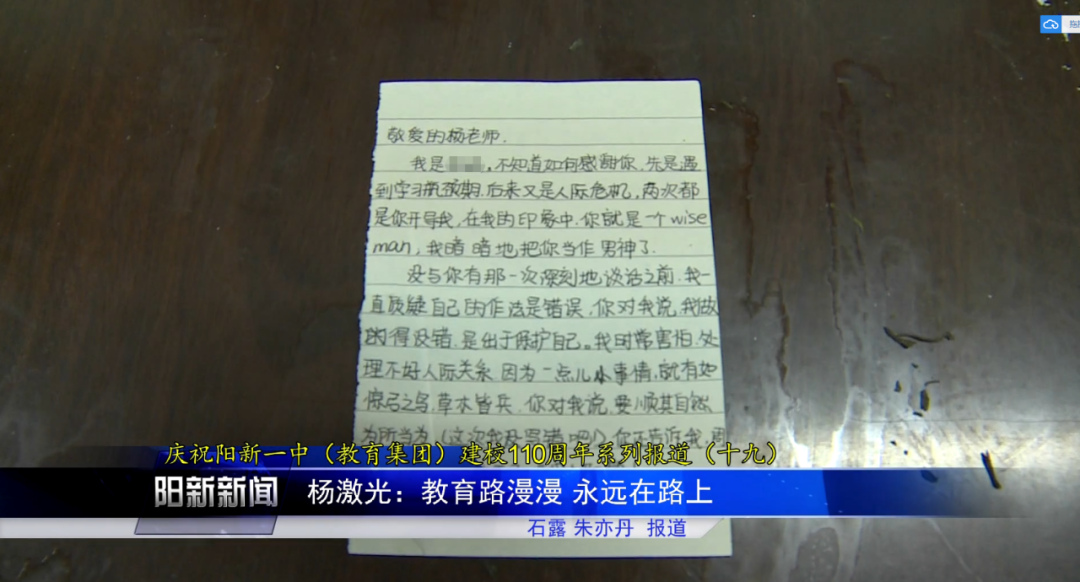 敬爱的杨老师.
我是，不知道如何感谢你.先是遇
到学习瓶颈期.后来又是人际危机，两次都
是你开导我，在我的印象中.你就是一个wise
man，我暗暗地把你当作男神了.
没与你有那一次深刻地谈话之前.我一
直质疑自己的作法是错误.你对我说,我做
的得没错.是出于保护自己。我时常害怕.处
理不好人际关系.因为一点儿小事情.就有如
惊弓之鸟,草木皆兵.你对我说.要顺其自然
为所当为
庆祝阳新一中（教育集团）建校110周年系列报道（十九）
阳新新闻 杨激光：教育路漫漫 永远在路上
石露 朱亦丹 报道